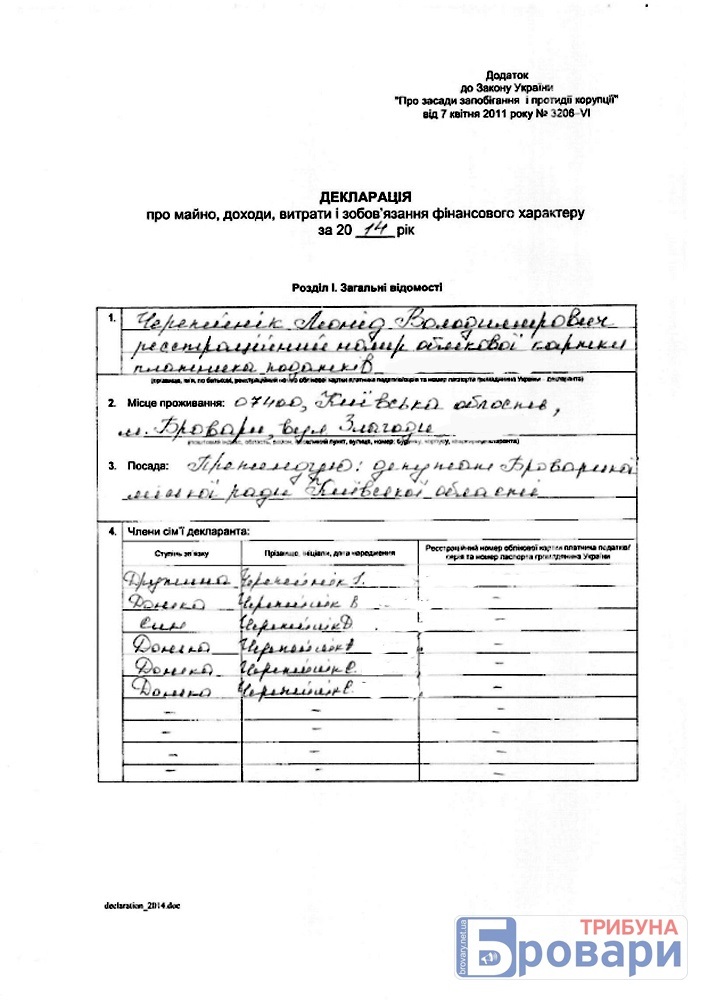 Додаток
до Закону України
"Про засади запобігання і протидії корупції"
від 7 квітня 2011 року № 3206-VI
ДЕКЛАРАЦІЯ
про майно, доходи, витрати і зобов'язання фінансового характеру
за 20 14 рік
Розділ I. Загальні відомості
1. Черепейнік Леонід Володимирович
реєстраційний номер облікової картки
платника податків
(прізвище, ім'я, по батькові, реєстраційний номер облікової картки платника податків/серія та номер паспорта громадянина України - декларанта)
2. Місце проживання: 07400, Київська область,
м. Бровари, вул Злагоди
(поштовий індекс, область, район, населений пункт, вулиця, номер будинку, корпусу, квартири декларанта)
3. Посада: депутат Броварської
міської ради Київської області
4. Члени сім'ї декларанта:
Ступінь зв'язку Прізвище, ініціали, дата народження Реєстраційний номер облікової картки платника податків/
серія та номер паспорта громадянина України
Дружина Черепейнік –
Донька Черепейнік В –
син Черепейнік Д –
Донька Черепейнік –
Донька Черепейнік Є. –
Донька Черепейнік Є. –
– – –
– – –
– – –
– – –
declaration_2014.doc
brovary.net.ua
ТРИБУНА
Бровари